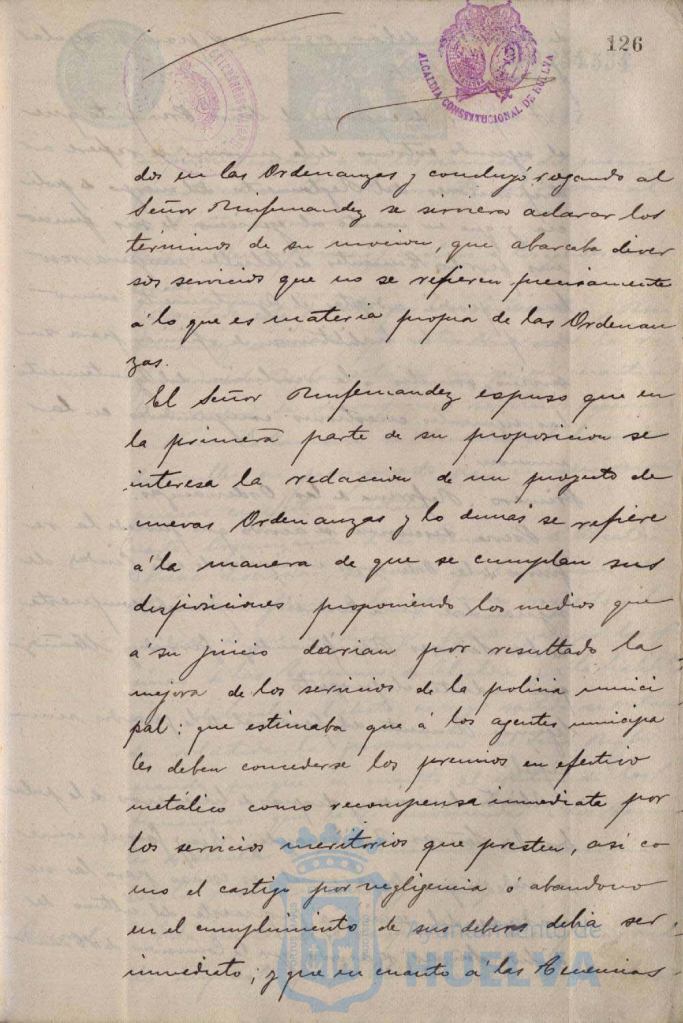 126
ALCALDIA CONSTITUCIONAL DE HUELVA
dos en las Ordenanzas y concluyó rogando al
Señor Rusfernandez se sirviera aclarar los
términos de su mocion, que abarcaba diver
sos servicios que no se refieren precisamente
á lo que es materia propia de las Ordenan
zas.
El Señor Rusfernandez espuso que en
la primera parte de su proposicion se
interesa la redaccion de un proyecto de
nuevas Ordenanzas y lo demas se refiere
á la manera de que se cumplan sus
disposiciones proponiendo los medios que
á su juicio darian por resultado la
mejora de los servicios de la policia munici
pal: que estimaba que á los agentes municipa
les deben concederse los premios en efectivo
metálico como recompensa inmediata por
los servicios meritorios que presten, así co
mo el castigo por negligencia ó abandono
en el cumplimiento de sus deberes debia ser
inmediato; y que en cuanto á las Tenencias
Ayuntamiento de
HUELVA